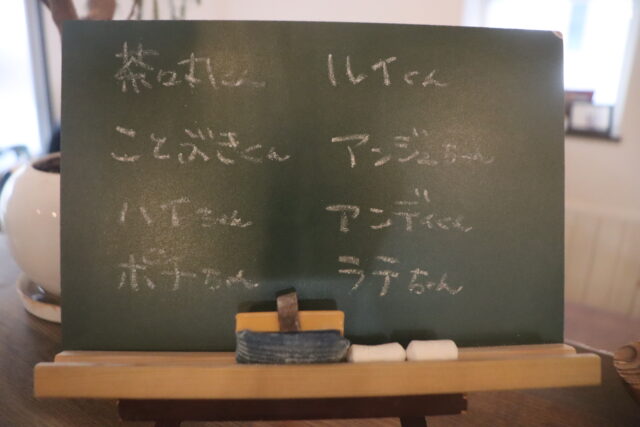 茶々丸くん
ルイくん
ことぶきくん
アンジュちゃん
ハイちゃん
アンディくん
ポチちゃん
ラテちゃん